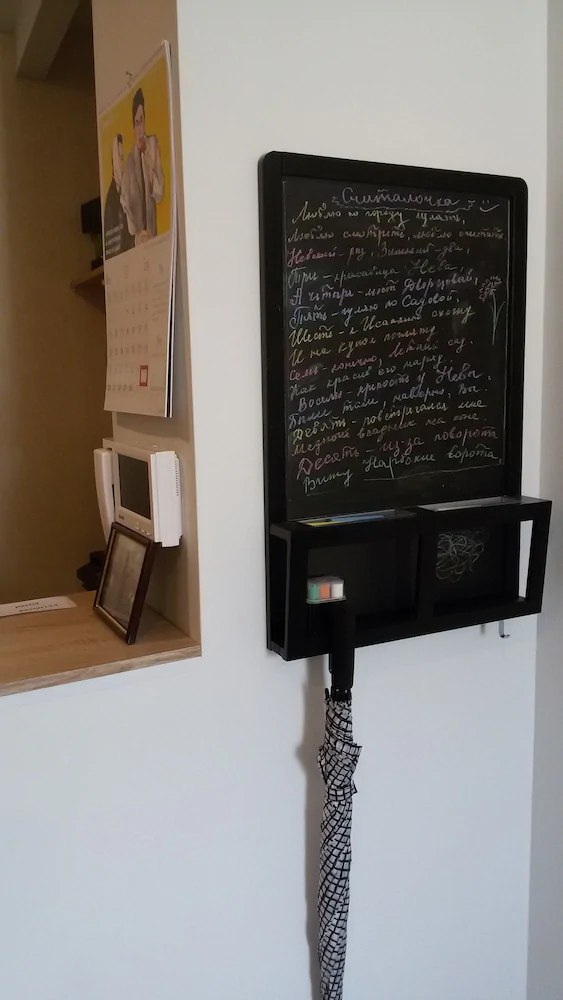 Считалочка
Люблю по городу гулять,
Люблю смотреть, люблю считать
Невский - раз, Зимний - два,
Три - красавица Нева,
А четыре - мост Дворцовый,
Пять - гуляю по Садовой,
Шесть - к Исаакию схожу
И на купол погляжу
Семь - конечно, Летний сад.
Как красив его наряд.
Восемь - крепость у Невы.
Были там, наверно, Вы.
Девять - повстречался мне
Медный всадник на коне.
Десять - из-за поворота
Вижу Нарвские ворота.